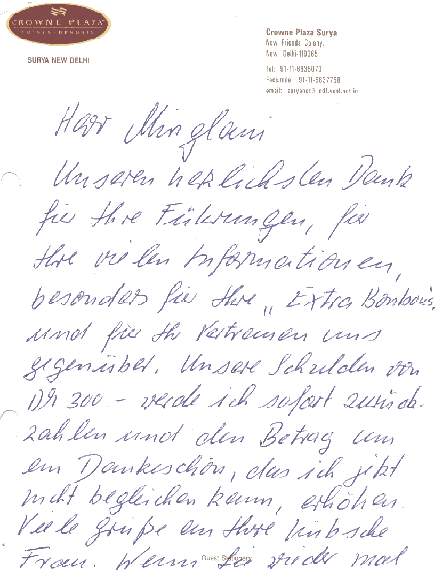 CROWNE PLAZA
SURYA NEW DELHI
Crowne Plaza Surya
New Friends Colony,
New Delhi-110065
Tel: 91-11-6835070
Facsimile: 91-11-6837758
email:
Herr Minglani
Unseren herzlichsten Dank
für Ihre Führungen, für
Ihre vielen Informationen,
besonders für Ihre „Extra Bonbons"
und für Ihr Vertrauen uns
gegenüber. Unsere Schulden von
300 - werde ich sofort zurück-
zahlen und den Betrag um
ein Dankeschön, das ich jetzt
nicht begleichen kann, erhöhen.
Viele Grüße an Ihre hübsche
Frau. Wenn Sie wieder mal
Guest Stationery